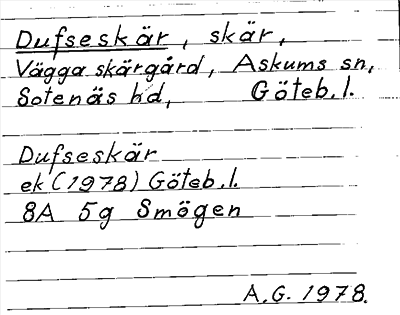 Dufseskär, skär,
Vägga skärgård, Askums sn,
Sotenäs hd, Göteb.l.
Dufseskär
ek (1978) Göteb.l.
8A 5g Smögen
A.G. 1978.